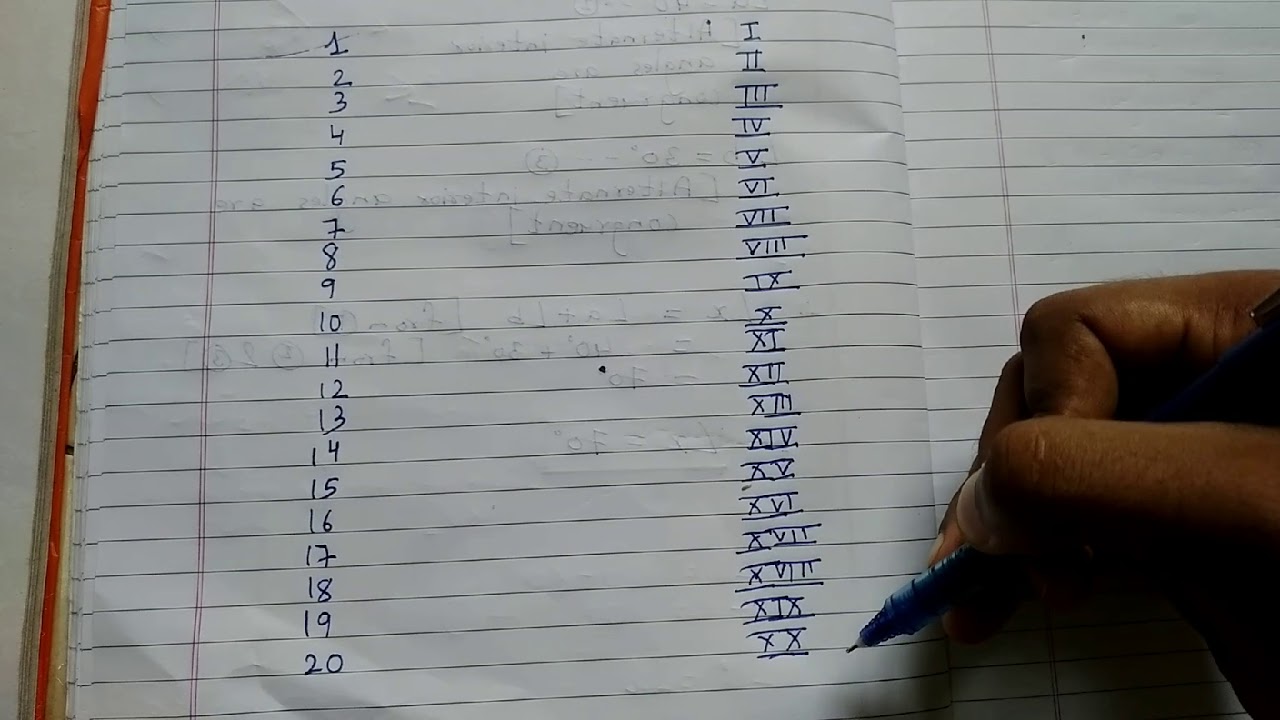 1 I
2 II
3 III
4 IV
5 V
6 VI
7 VII
8 VIII
9 IX
10 X
11 XI
12 XII
13 XIII
14 XIV
15 XV
16 XVI
17 XVII
18 XVIII
19 XIX
20 XX